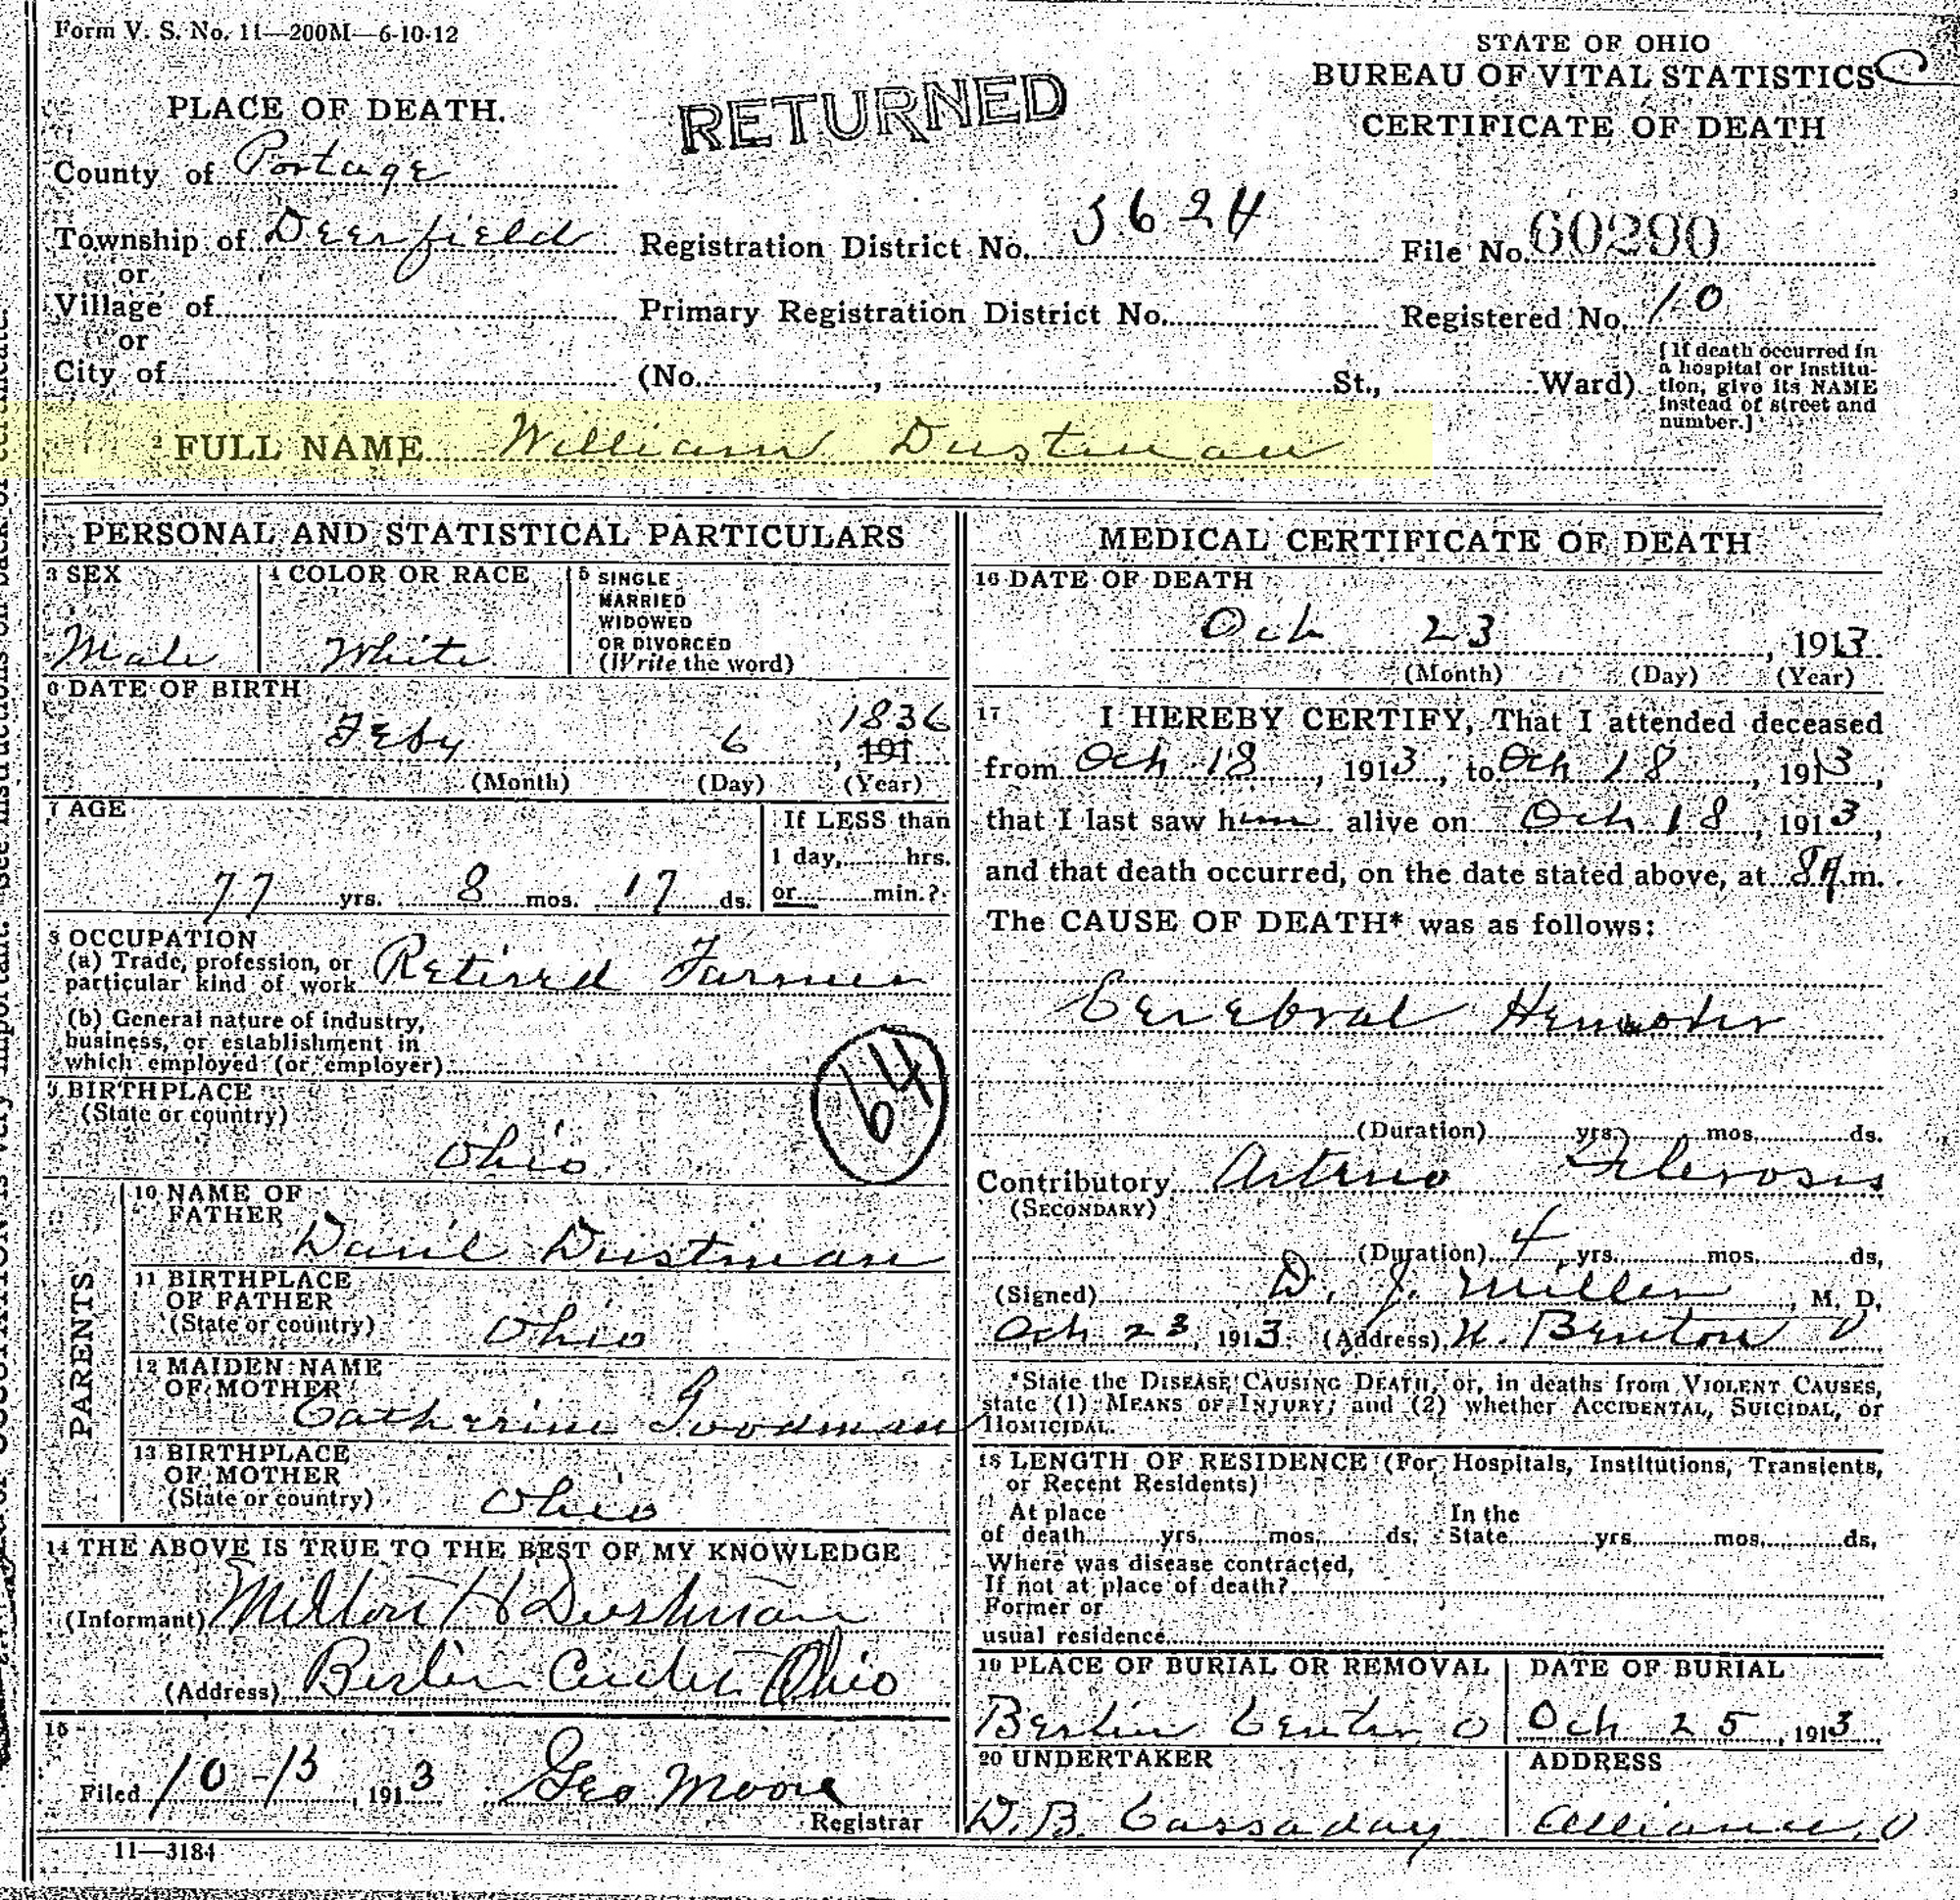 Form V. S. No. 11—200M—6-10-12
STATE OF OHIO
BUREAU OF VITAL STATISTICS
CERTIFICATE OF DEATH
RETURNED
PLACE OF DEATH.
County of Portage
Township of Deerfield Registration District No. 3624 File No. 60290
or
Village of Primary Registration District No. Registered No. 10
or
City of (No. , St., Ward)
[If death occurred in
a hospital or institu-
tion, give its NAME
instead of street and
number.]
2 FULL NAME William Dustman
PERSONAL AND STATISTICAL PARTICULARS
3 SEX
Male
4 COLOR OR RACE
White
5 SINGLE
MARRIED
WIDOWED
OR DIVORCED
(Write the word)
6 DATE OF BIRTH
Feby 6 , 191 1836
(Month) (Day) (Year)
7 AGE
77 yrs. 8 mos. 17 ds.
If LESS than
1 day, hrs.
or min.?
8 OCCUPATION
(a) Trade, profession, or
particular kind of work Retired Farmer
(b) General nature of industry,
business, or establishment in
which employed (or employer)
64
9 BIRTHPLACE
(State or country)
Ohio
PARENTS
10 NAME OF
FATHER
Danil Dustman
11 BIRTHPLACE
OF FATHER
(State or country) Ohio
12 MAIDEN NAME
OF MOTHER
Catherine Goodman
13 BIRTHPLACE
OF MOTHER
(State or country) Ohio
14 THE ABOVE IS TRUE TO THE BEST OF MY KNOWLEDGE
(Informant) Milton H Dustman
(Address) Berlin Center Ohio
15
Filed 10-13, 1913 Geo Moore
Registrar
11—3184
MEDICAL CERTIFICATE OF DEATH
16 DATE OF DEATH
Oct 23 , 1913
(Month) (Day) (Year)
17 I HEREBY CERTIFY, That I attended deceased
from Oct 18, 1913, to Oct 18, 1913,
that I last saw him alive on Oct 18, 1913,
and that death occurred, on the date stated above, at 8 A.m.
The CAUSE OF DEATH* was as follows:
Cerebral
(Duration) yrs. mos. ds.
Contributory Arterio Sclerosis
(SECONDARY)
(Duration) 4 yrs. mos. ds.
(Signed) D. J. Miller, M. D.
Oct 23, 1913 (Address) N. Benton O
*State the DISEASE CAUSING DEATH, or, in deaths from VIOLENT CAUSES,
state (1) MEANS OF INJURY; and (2) whether ACCIDENTAL, SUICIDAL, or
HOMICIDAL.
18 LENGTH OF RESIDENCE (For Hospitals, Institutions, Transients,
or Recent Residents)
At place In the
of death yrs. mos. ds. State yrs. mos. ds.
Where was disease contracted,
If not at place of death?
Former or
usual residence
19 PLACE OF BURIAL OR REMOVAL
Berlin Center, O
DATE OF BURIAL
Oct 25, 1913
20 UNDERTAKER
D. B. Cassaday
ADDRESS
Alliance, O